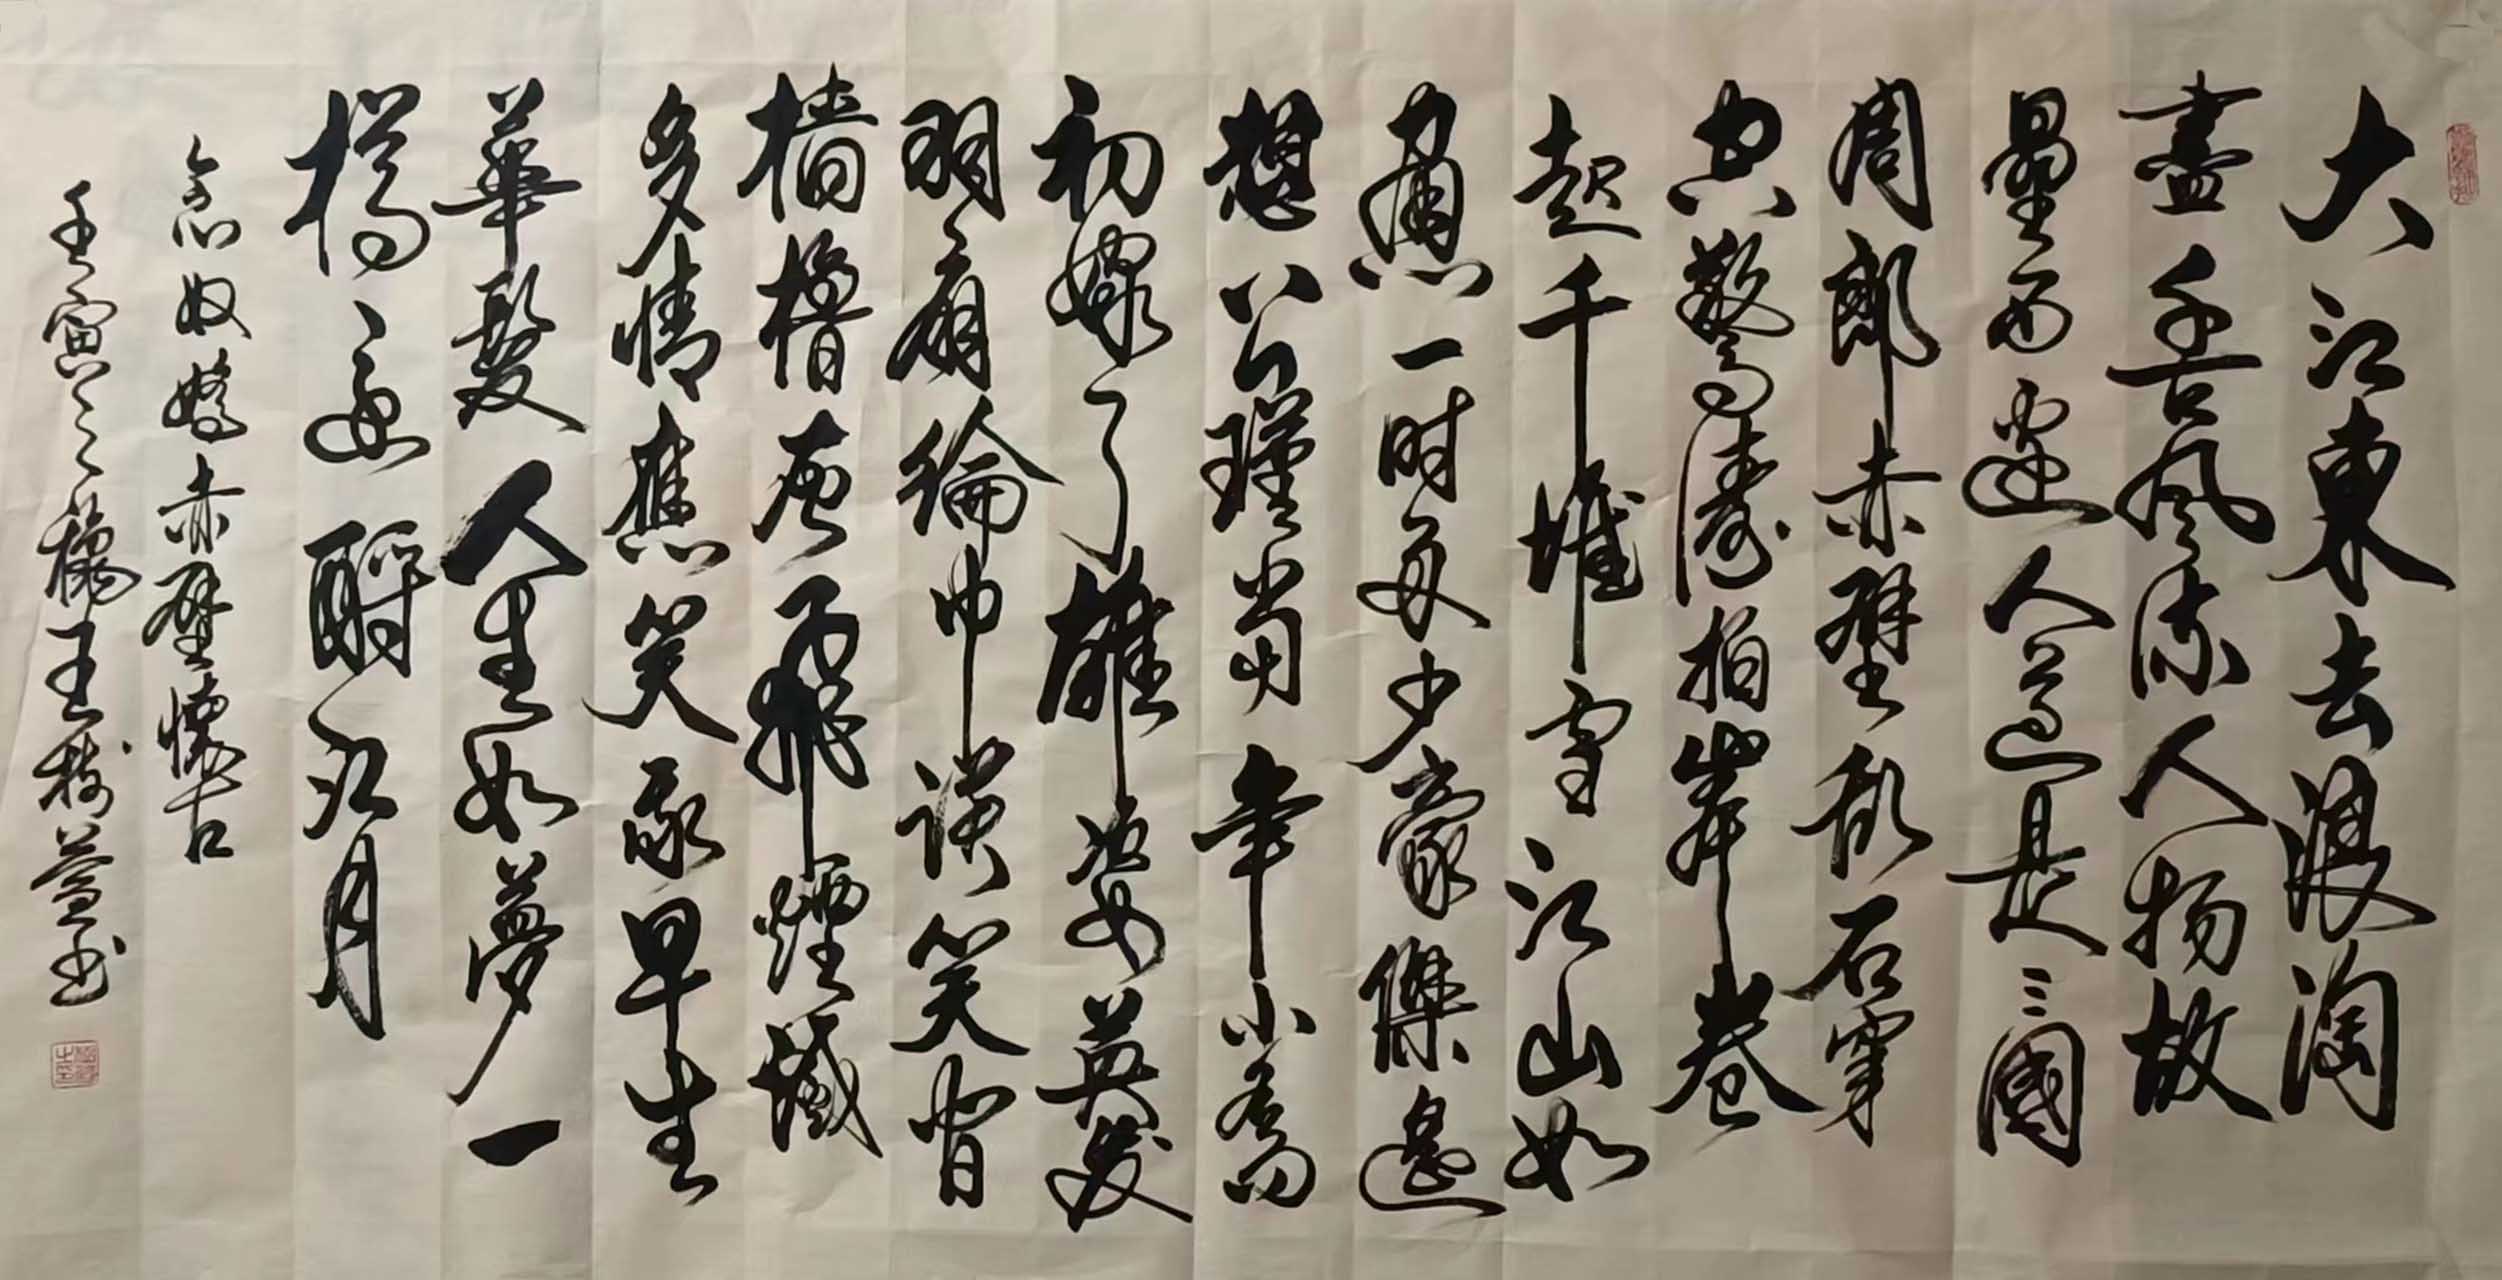 大江東去浪淘
盡千古風流人物故
壘西邊人道是三國
周郎赤壁亂石穿
空驚濤拍岸卷
起千堆雪江山如
畫一時多少豪傑遙
想公瑾當年小喬
初嫁了雄姿英發
羽扇綸巾談笑間
檣櫓灰飛煙滅
多情應笑我早生
華髮人生如夢一
樽還酹江月
念奴嬌赤壁懷古
壬寅之王樹萱書